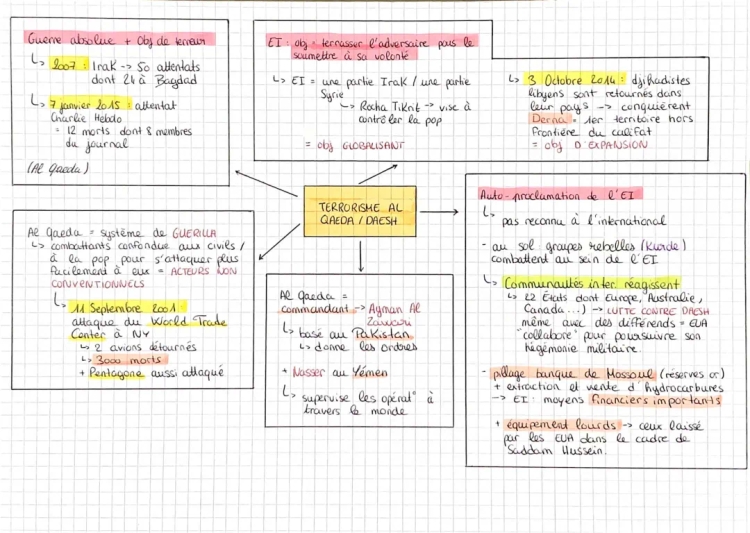 Guerre absolue + Obj de terreur
↳ 2007 : Irak → 50 attentats
dont 24 à Bagdad
↳ 7 janvier 2015 : attentat
Charlie Hebdo
= 12 morts dont 8 membres
du journal
(Al Qaeda)
EI : obj = terrasser l'adversaire pous le
soumettre à sa volonté
↳ EI = une partie Irak / une partie
Syrie
↳ Rocha Tiknit → vise à
contrôler la pop
= obj GLOBALISANT
↳ 3 Octobre 2014 : djihadistes
libyens sont retournés dans
leur pays → conquièrent
Derna = 1er territoire hors
frontière du califat
= obj D'EXPANSION
TERRORISME AL
QAEDA / DAESH
Al Qaeda = système de GUERILLA
↳ combattants confondue aux civils /
à la pop pour s'attaquer plus
facilement à eux = ACTEURS NON
CONVENTIONNELS
↳ 11 Septembre 2001
attaque du World Trade
Center à NY
↳ 2 avions détournés
↳ 3000 morts
+ Pentagone aussi attaqué
Al Qaeda =
commandant → Ayman Al
↳ basé au Pakistan
↳ donne les ordres
+ Nasser au Yémen
↳ supervise les opérat° à
travers le monde
Auto-proclamation de l'EI
↳ pas reconnu à l'international
- au sol groupes rebelles (Kurde)
combattent au sein de l'EI
↳ Communautés inter. réagissent
↳ 22 États dont Europe, Australie,
Canada...) → LUTTE CONTRE DAESH
même avec des différends = EUA
"collabore" pour poursuivre son
hégémonie militaire.
- pillage banque de Mossoul (réserves or)
+ extraction et vente d'hydrocarbures
→ EI : moyens financiers importants
+ équipement lourds → ceux laissé
par les EUA dans le cadre de
Saddam Hussein.